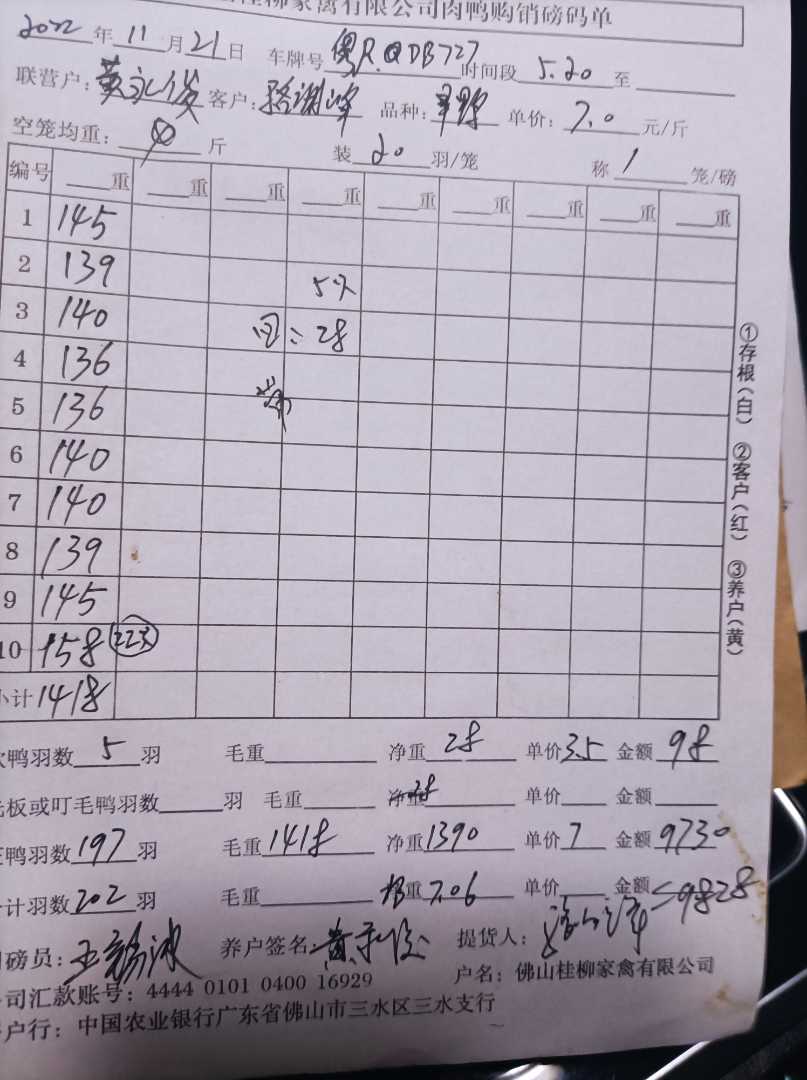 桂柳家禽有限公司肉鸭购销磅码单
2022年11月21日 车牌号 粤R.QDB727 时间段 5.20 至
联营户: 黄永俊 客户: 骆 峰 品种: 野 单价: 7.0 元/斤
空笼均重: 斤 装 20 羽/笼 称 1 笼/磅
编号 重 重 重 重 重 重 重 重 重
1 145
2 139 5只
3 140 = 28
4 136
5 136
6 140
7 140
8 139
9 145
10 158 (22只)
小计 1418
鸭羽数 5 羽 毛重 净重 28 单价 3.5 金额 98
板或叮毛鸭羽数 羽 毛重 净重 28 单价 金额
鸭羽数 197 羽 毛重 1418 净重 1390 单价 7 金额 9730
计羽数 202 羽 毛重 均重 7.06 单价 金额 =9828
磅员: 王 养户签名: 黄永俊 提货人:
司汇款账号: 4444 0101 0400 16929 户名: 佛山桂柳家禽有限公司
户行: 中国农业银行广东省佛山市三水区三水支行
①存根(白) ②客户(红) ③养户(黄)